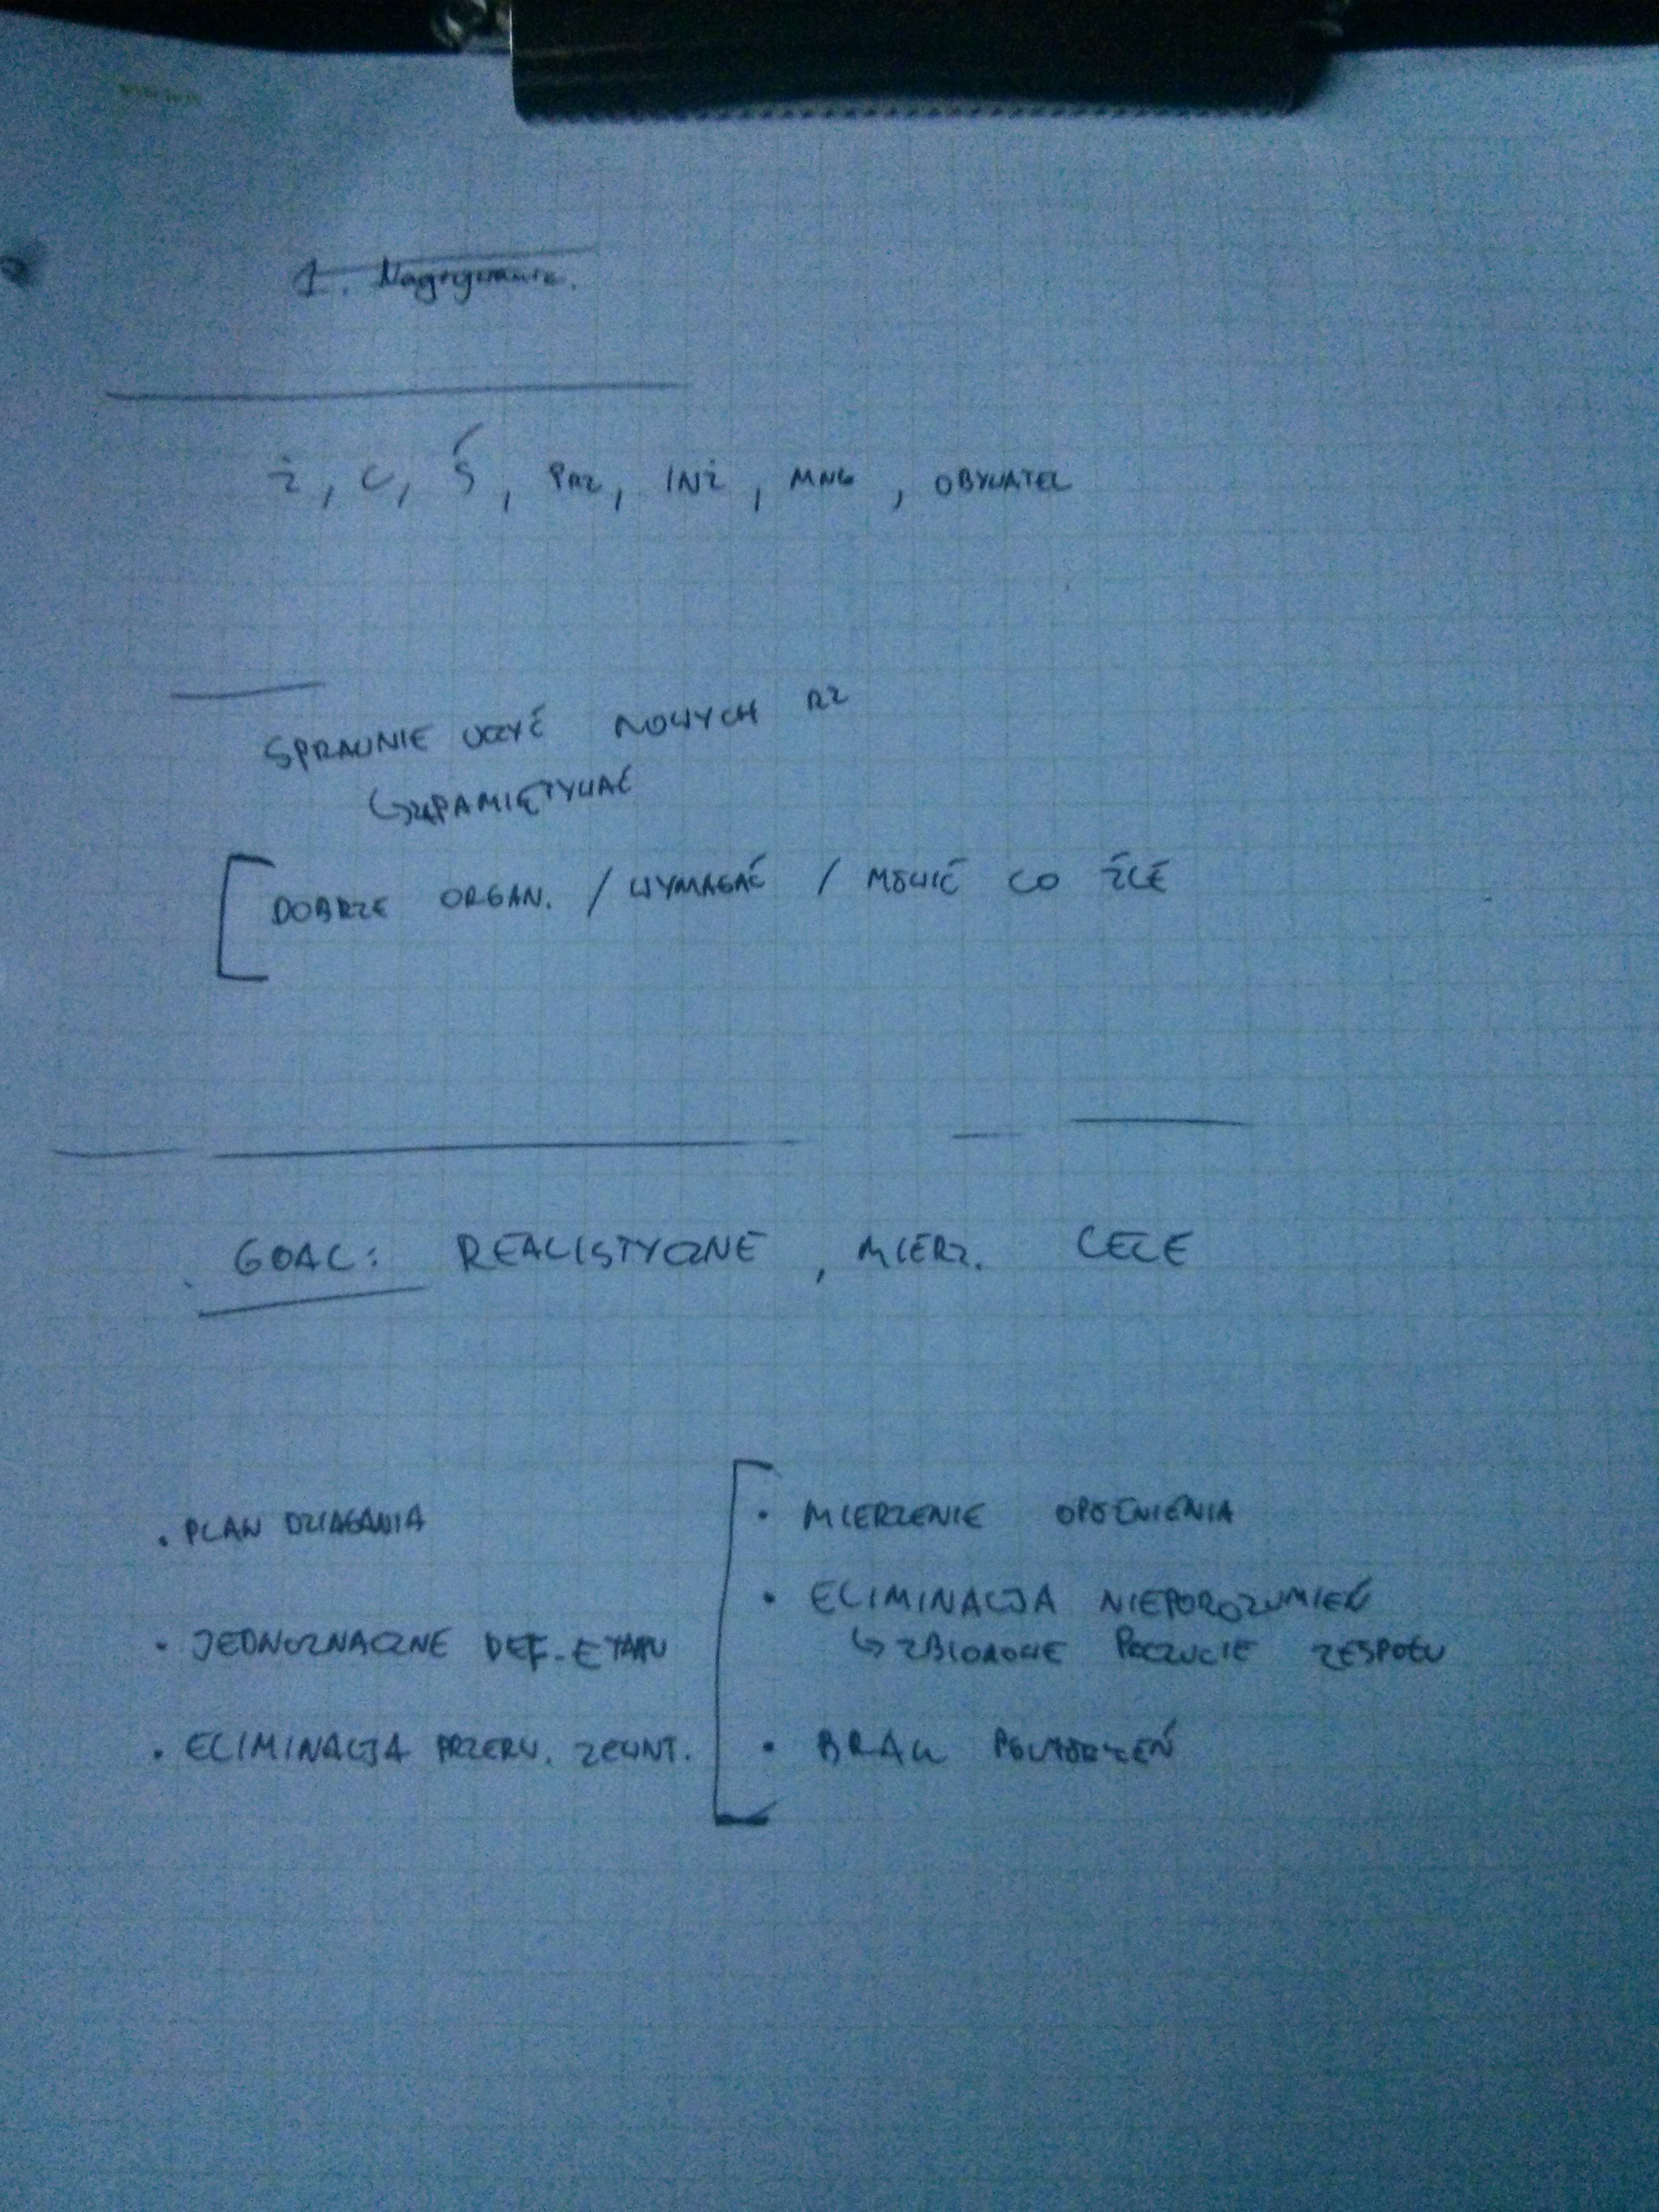 1. Nagrywanie.
Ż, C, Ś, PRZ, INŻ, MNG, OBYWATEL
SPRAWNIE UCZYĆ NOWYCH RZ
↳ ZAPAMIĘTYWAĆ
DOBRZE ORGAN. / WYMAGAĆ / MÓWIĆ CO ŹLE
GOAL: REALISTYCZNE, MIERZ. CELE
• PLAN DZIAŁANIA
• JEDNOZNACZNE DEF. ETAPU
• ELIMINACJA PRZERW. ZEWNT.
• MIERZENIE OPÓŹNIENIA
• ELIMINACJA NIEPOROZUMIEŃ
↳ ZBIOROWE POCZUCIE ZESPOŁU
• BRAK POWTÓRZEŃ